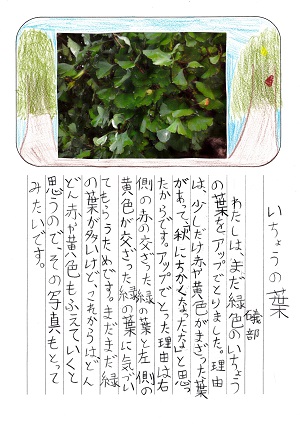 いちょうの葉
礒部
わたしは、まだ緑色のいちょう
の葉をアップでとりました。理由
は、少しだけ赤や黄色がまざった葉
があって、「秋にちかくなったな」と思っ
たからです。アップでとった理由は右
側の赤の交ざった緑の葉と左側の
黄色が交ざった緑の葉に気づい
てもらうためです。まだまだ緑
の葉が多いけど、これからはどん
どん赤や黄色もふえていくと
思うので、その写真もとって
みたいです。